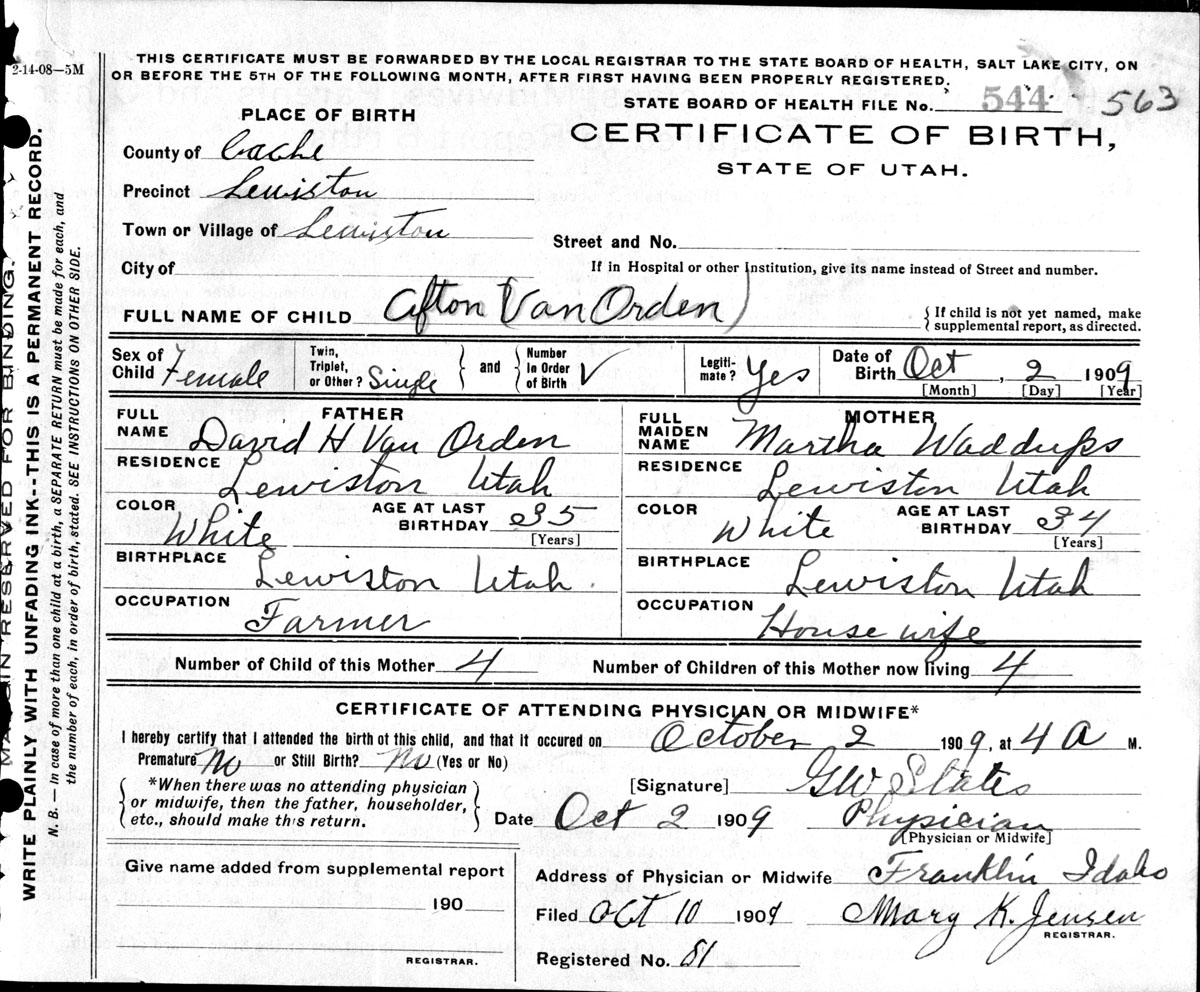 2-14-08—5M
THIS CERTIFICATE MUST BE FORWARDED BY THE LOCAL REGISTRAR TO THE STATE BOARD OF HEALTH, SALT LAKE CITY, ON
OR BEFORE THE 5TH OF THE FOLLOWING MONTH, AFTER FIRST HAVING BEEN PROPERLY REGISTERED.
STATE BOARD OF HEALTH FILE No. 544 563
CERTIFICATE OF BIRTH,
STATE OF UTAH.
PLACE OF BIRTH
County of Cache
Precinct Lewiston
Town or Village of Lewiston
Street and No.
City of
If in Hospital or other Institution, give its name instead of Street and number.
FULL NAME OF CHILD Afton (Van Orden)
{ If child is not yet named, make
supplemental report, as directed.
Sex of Child Female
Twin, Triplet, or Other? Single } and { Number In Order of Birth V
Legiti- mate? Yes
Date of Birth Oct, 2 1909
[Month] [Day] [Year]
FATHER
FULL NAME David H Van Orden
RESIDENCE Lewiston Utah
COLOR White
AGE AT LAST BIRTHDAY 35
[Years]
BIRTHPLACE Lewiston Utah.
OCCUPATION Farmer
MOTHER
FULL MAIDEN NAME Martha Waddups
RESIDENCE Lewiston Utah
COLOR White
AGE AT LAST BIRTHDAY 34
[Years]
BIRTHPLACE Lewiston Utah
OCCUPATION House wife
Number of Child of this Mother 4
Number of Children of this Mother now living 4
CERTIFICATE OF ATTENDING PHYSICIAN OR MIDWIFE*
I hereby certify that I attended the birth of this child, and that it occured on October 2 1909, at 4 A M.
Premature No or Still Birth? No (Yes or No)
{ *When there was no attending physician
or midwife, then the father, householder,
etc., should make this return. }
[Signature] GW States
Date Oct 2 1909 Physician
[Physician or Midwife]
Give name added from supplemental report
190
REGISTRAR.
Address of Physician or Midwife Franklin Idaho
Filed Oct 10 1909 Mary K. Jensen
REGISTRAR.
Registered No. 81
MARGIN RESERVED FOR BINDING.
WRITE PLAINLY WITH UNFADING INK--THIS IS A PERMANENT RECORD.
N. B. — In case of more than one child at a birth, a SEPARATE RETURN must be made for each, and
the number of each, in order of birth, stated. SEE INSTRUCTIONS ON OTHER SIDE.